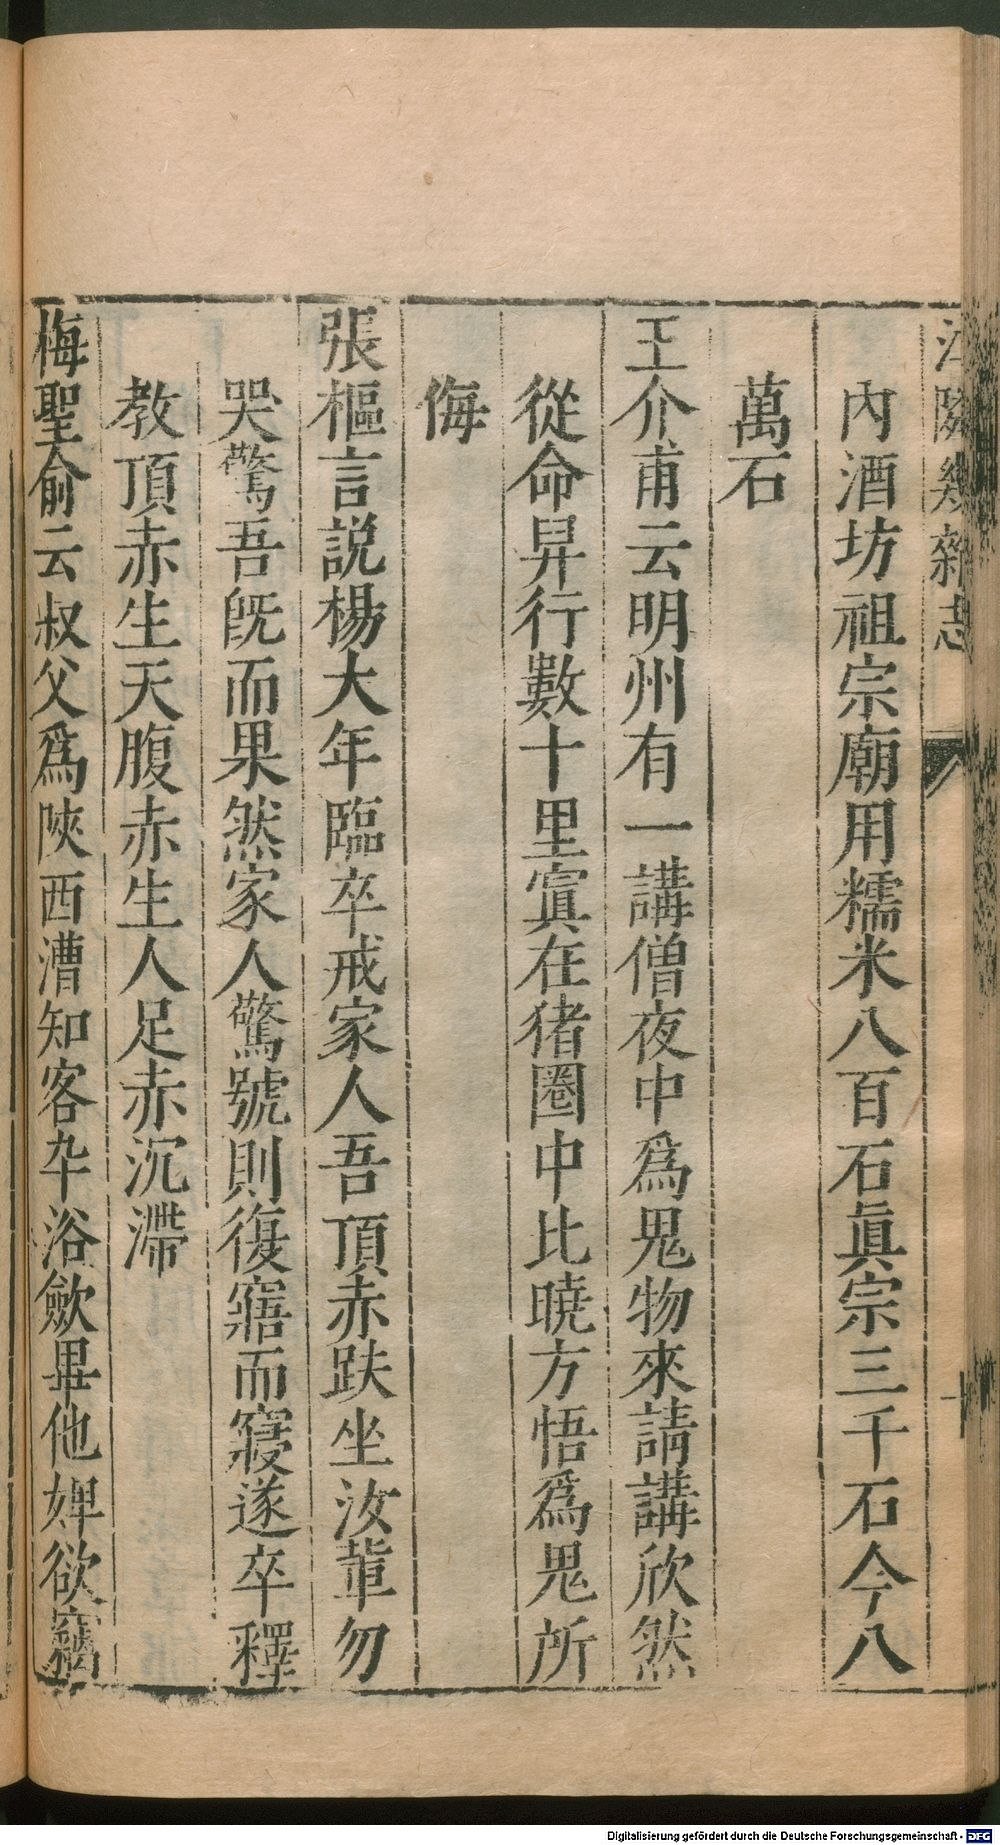 江隣幾雜志
內酒坊祖宗廟用糯米八百石眞宗三千石今八
萬石
王介甫云明州有一講僧夜中爲鬼物來請講欣然
從命昇行數十里寘在猪圈中比曉方悟爲鬼所
侮
張樞言説楊大年臨卒戒家人吾頂赤趺坐汝軰勿
哭驚吾旣而果然家人驚號則復寤而寢遂卒釋
教頂赤生天腹赤生人足赤沉滯
梅聖俞云叔父爲陝西漕知客卒浴歛畢他婢欲竊
Digitalisierung gefördert durch die Deutsche Forschungsgemeinschaft - DFG